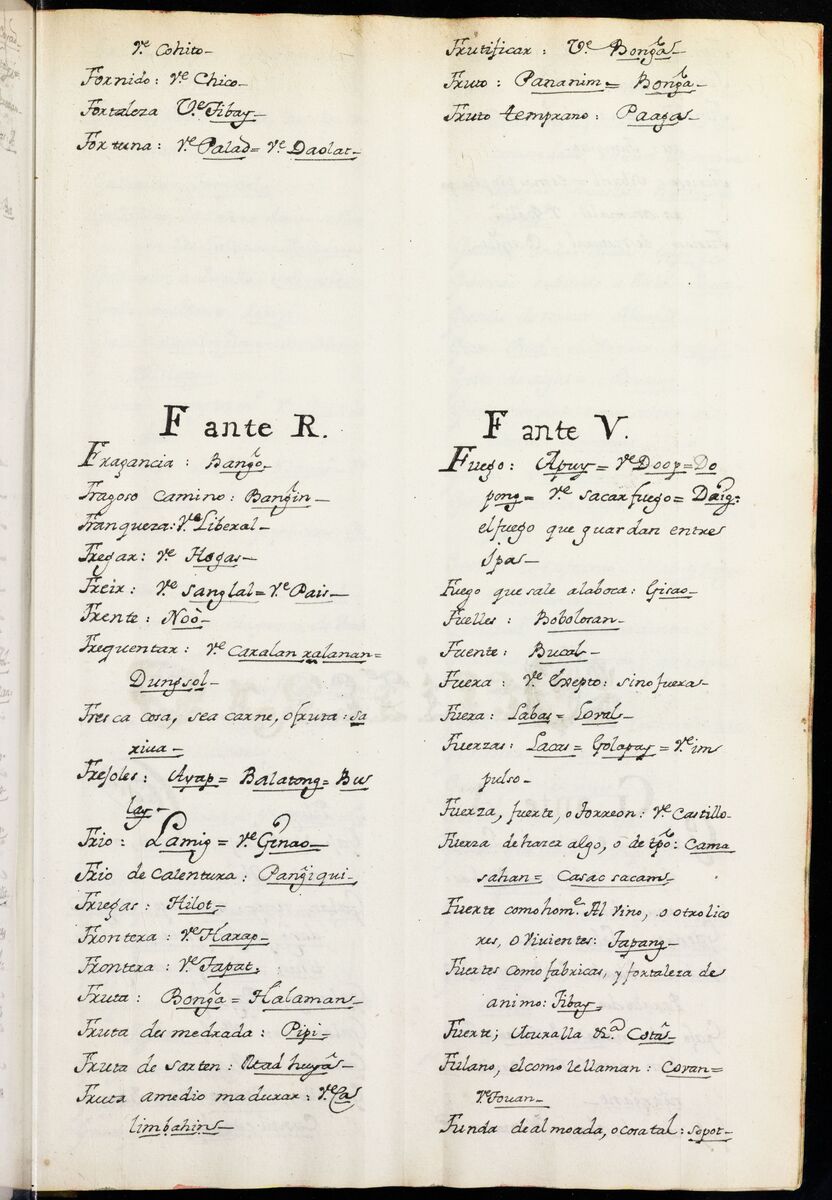 vᵉ Cohito_
Fornido: vᵉ Chico_
Fortaleza Vᵉ Tibay_
Fortuna: vᵉ Palad= vᵉ Daolat_
F ante R.
Fragancia: Bango_
Fragoso camino: Bangin_
Franqueza: vᵉ Liberal_
Fregar: vᵉ Hogas_
Freir: vᵉ sanglal= vᵉ Pais_
Frente: Noò_
Frequentar: vᵉ caralan ralanan=
Dungsol_
Fresca cosa, sea carne, ofruta: sa
riua_
Fresoles: Ayap= Balatong= Bu
lay_
Frio: Lamig= vᵉ Ginao_
Frio de Calentura: Pangiqui_
Friegas: Hilot_
Frontera: vᵉ Harap_
Frontera: vᵉ Tapat.
Fruta: Bonga= Halaman_
Fruta desmedrada: Pipi_
Fruta de sarten:
Fruta amedio madurar: vᵉ Ca
limbahin_
Frutificar: Vᵉ Bonga_
Fruto: Pananim= Bonga_
Fruto temprano: Paaga_
F ante V.
Fuego: Apuy= vᵉ Doop= Do
pong= vᵉ sacar fuego= Daig:
el fuego que guardan entre
ipa_
Fuego que sale alaboca: Gisao_
Fuelles: Bobolosan_
Fuente: Bucal_
Fuera: vᵉ Exepto: sinofuera_
Fuera: Labas= Loval_
Fuerzas: Lacas= Golapay= vᵉ im
pulso_
Fuerza, fuerte, o torreon: vᵉ Castillo_
Fuerza de hazer algo, o de tpo: Cama
sahan= Casao sacam_
Fuerte como homᵉ. Al vino, o otro lico
res, o vivientes: Tapang_
Fuertes como fabricas, y fortaleza de
animo: Tibay=
Fuerte; Muralla &ª. Cota_
Fulano, elcomo lellaman: Covan=
vᵉ Touan_
Funda de almoada, o cosa tal: sopot_